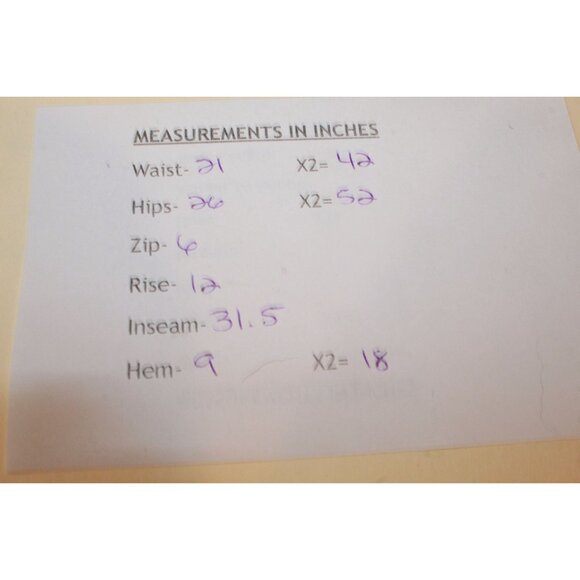 MEASUREMENTS IN INCHES
Waist- 21 X2= 42
Hips- 26 X2= 52
Zip- 6
Rise- 12
Inseam- 31.5
Hem- 9 X2= 18